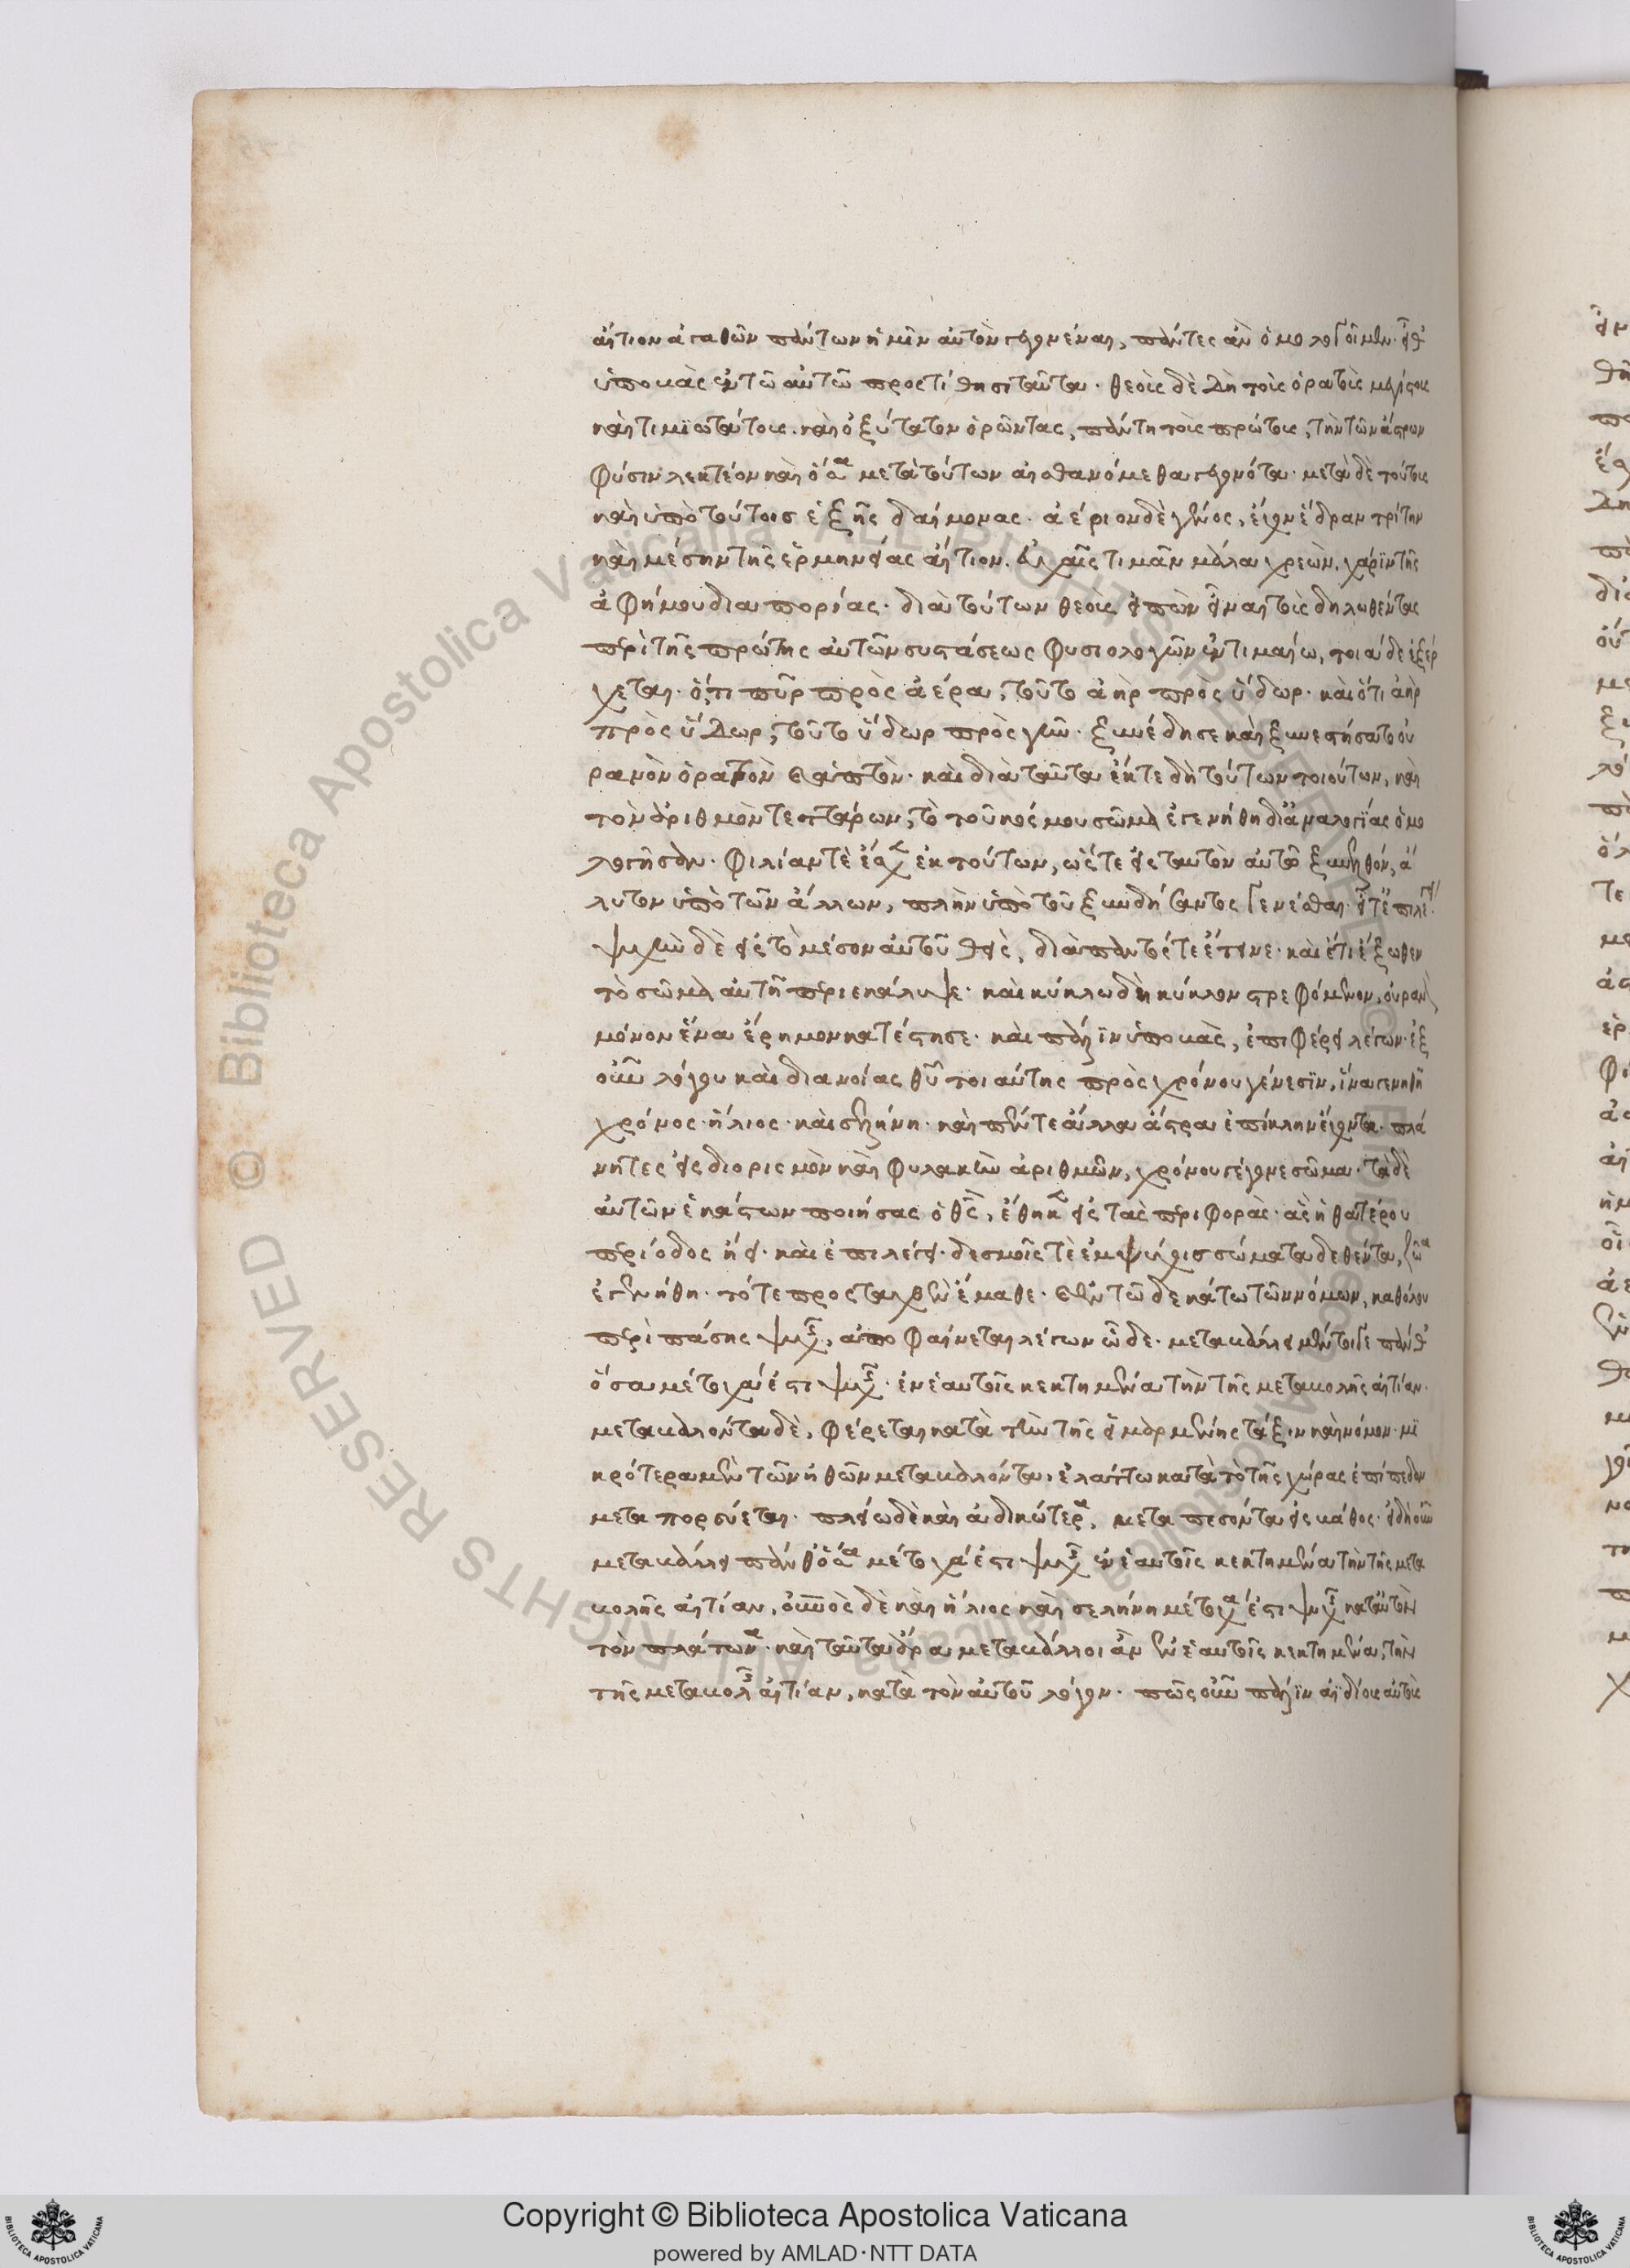 αἴτιον ἀγαθῶν πάντων ἡμῖν αὐτὸν γεγονέναι, πάντες ἂν ὁμολογοῖμεν. εἶθ'
ὑποβὰς ἐν τῷ αὐτῷ προστίθησι ταῦτα. θεοὺς δὲ δὴ τοὺς ὁρατοὺς μεγίστους
καὶ τιμιωτάτους. καὶ ὀξύτατον ὁρῶντας, πάντη τοὺς πρώτους, τὴν τῶν ἄστρων
φύσιν λεκτέον καὶ ὅσα μετὰ τούτων αἰσθανόμεθα γεγονότα. μετὰ δὲ τούτους
καὶ ὑπὸ τούτοις ἑξῆς δαίμονας. ἀέριον δὲ γένος, ἔχον ἕδραν τρίτην
καὶ μέσην τῆς ἑρμηνείας αἴτιον. εὐχαῖς τιμᾶν μάλα χρεὼν. χάριν τῆς
εὐφήμου διαπορείας. διὰ τούτων θεοὺς εἰπὼν εἶναι τοὺς δηλωθέντας
περὶ τῆς πρώτης αὐτῶν συστάσεως φυσιολογῶν ἐν τιμαίω, τοιαύδε ἐξέρ
χεται. ὅτι πῦρ πρὸς ἀέρα, τοῦτο ἀὴρ πρὸς ὕδωρ. καὶ ὅτι ἀὴρ
πρὸς ὕδωρ, τοῦτο ὕδωρ πρὸς γῆν. ξυνέδησε καὶ ξυνεστήσατο οὐ
ρανὸν ὁρατὸν καὶ ἁπτόν. καὶ διὰ ταῦτα ἔκ τε δὴ τούτων τοιούτων, καὶ
τὸν ἀριθμὸν τεττάρων, τὸ τοῦ κόσμου σῶμα ἐγενήθη δι' ἀναλογίας ὁμο
λογῆσαν. φιλίαν τὲ ἔσχεν ἐκ τούτων, ὥστε εἰς ταυτὸν αὑτῷ ξυνελθόν, ἄ
λυτον ὑπὸ τῶν ἄλλων, πλὴν ὑπὸ τοῦ ξυνδήσαντος γενέσθαι. εἶτ' ἔτι ἐπιλέγει.
ψυχὴν δὲ εἰς τὸ μέσον αὐτοῦ θεὶς, διὰ παντός τε ἔτεινε. καὶ ἔτι ἔξωθεν
τὸ σῶμα αὐτῇ περιεκάλυψε. καὶ κύκλω δὴ κύκλον στρεφόμενον, οὐρανὸν
μόνον ἕνα ἔρημον κατέστησε. καὶ πάλιν ὑποβὰς, ἐπιφέρει λέγων. ἐξ
οὖν λόγου καὶ διανοίας θεοῦ τοιαύτης πρὸς χρόνου γένεσιν, ἵνα γεννηθῇ
χρόνος. ἥλιος. καὶ σελήνη. καὶ πέντε ἄλλα ἄστρα ἐπίκλην ἔχοντα. πλά
νητες εἰς διορισμὸν καὶ φυλακὴν ἀριθμῶν, χρόνου γέγονε σῶμα. τὰ δὲ
αὐτῶν ἑκάστων ποιήσας ὁ θεὸς, ἔθηκεν εἰς τὰς περιφορὰς. ἃς ἡ θατέρου
περίοδος ᾔει. καὶ ἐπιλέγει. δεσμοῖς τὲ ἐμψύχοις σώματα δεθέντα, ζῶα
ἐγενήθη. τότε προσταχθὲν ἔμαθε. καὶ ἐν τῷ δεκάτω τῶν νόμων, καθόλου
περὶ πάσης ψυχῆς, ἀποφαίνεται λέγων ὧδε. μεταβάλλει μέν τοιγε πάνθ'
ὅσα μέτοχά ἐστι ψυχῆς. ἐν ἑαυτοῖς κεκτημένα τὴν τῆς μεταβολῆς αἰτίαν.
μεταβάλλοντα δὲ, φέρεται κατὰ τὴν τῆς εἱμαρμένης τάξιν καὶ νόμον. μι
κρότερα μὲν τῶν ἠθῶν μεταβάλλοντα, ἐλάττω κατὰ τὸ τῆς χώρας ἐπίπεδον
μεταπορεύεται. πλείω δὲ καὶ ἀδικώτερα, μεταπεσόντα εἰς βάθος. εἰ δὴ οὖν
μεταβάλλει πάνθ' ὅσα μέτοχά ἐστι ψυχῆς ἐν ἑαυτοῖς κεκτημένα τὴν τῆς μετα
βολῆς αἰτίαν, οὐρανὸς δὲ καὶ ἥλιος καὶ σελήνη μέτοχά ἐστι ψυχῆς κατ' αὐτὸν
τὸν πλάτωνα. καὶ ταῦτα ἄρα μεταβάλλοι ἂν ἐν ἑαυτοῖς κεκτημένα, τὴν
τῆς μεταβολῆς αἰτίαν, κατὰ τὸν αὐτοῦ λόγον. πῶς οὖν πάλιν ἀϊδίους αὐτοὺς
Copyright © Biblioteca Apostolica Vaticana
powered by AMLAD・NTT DATA